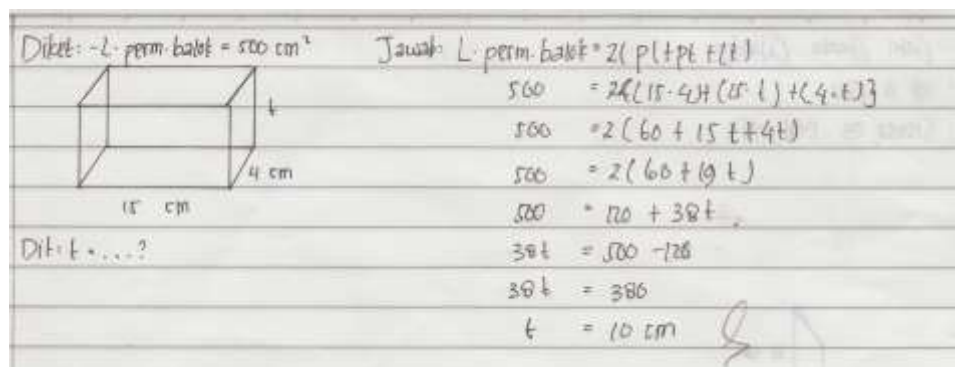 Diket: - L. perm. balok = 500 cm²
t
4 cm
15 cm
Dit: t = ....?
Jawab: L. perm. balok = 2(pl+pt+lt)
500 = 2{(15.4)+(15.t)+(4.t)}
500 = 2(60 + 15t+4t)
500 = 2(60+19t)
500 = 120 + 38t
38t = 500 - 120
38t = 380
t = 10 cm